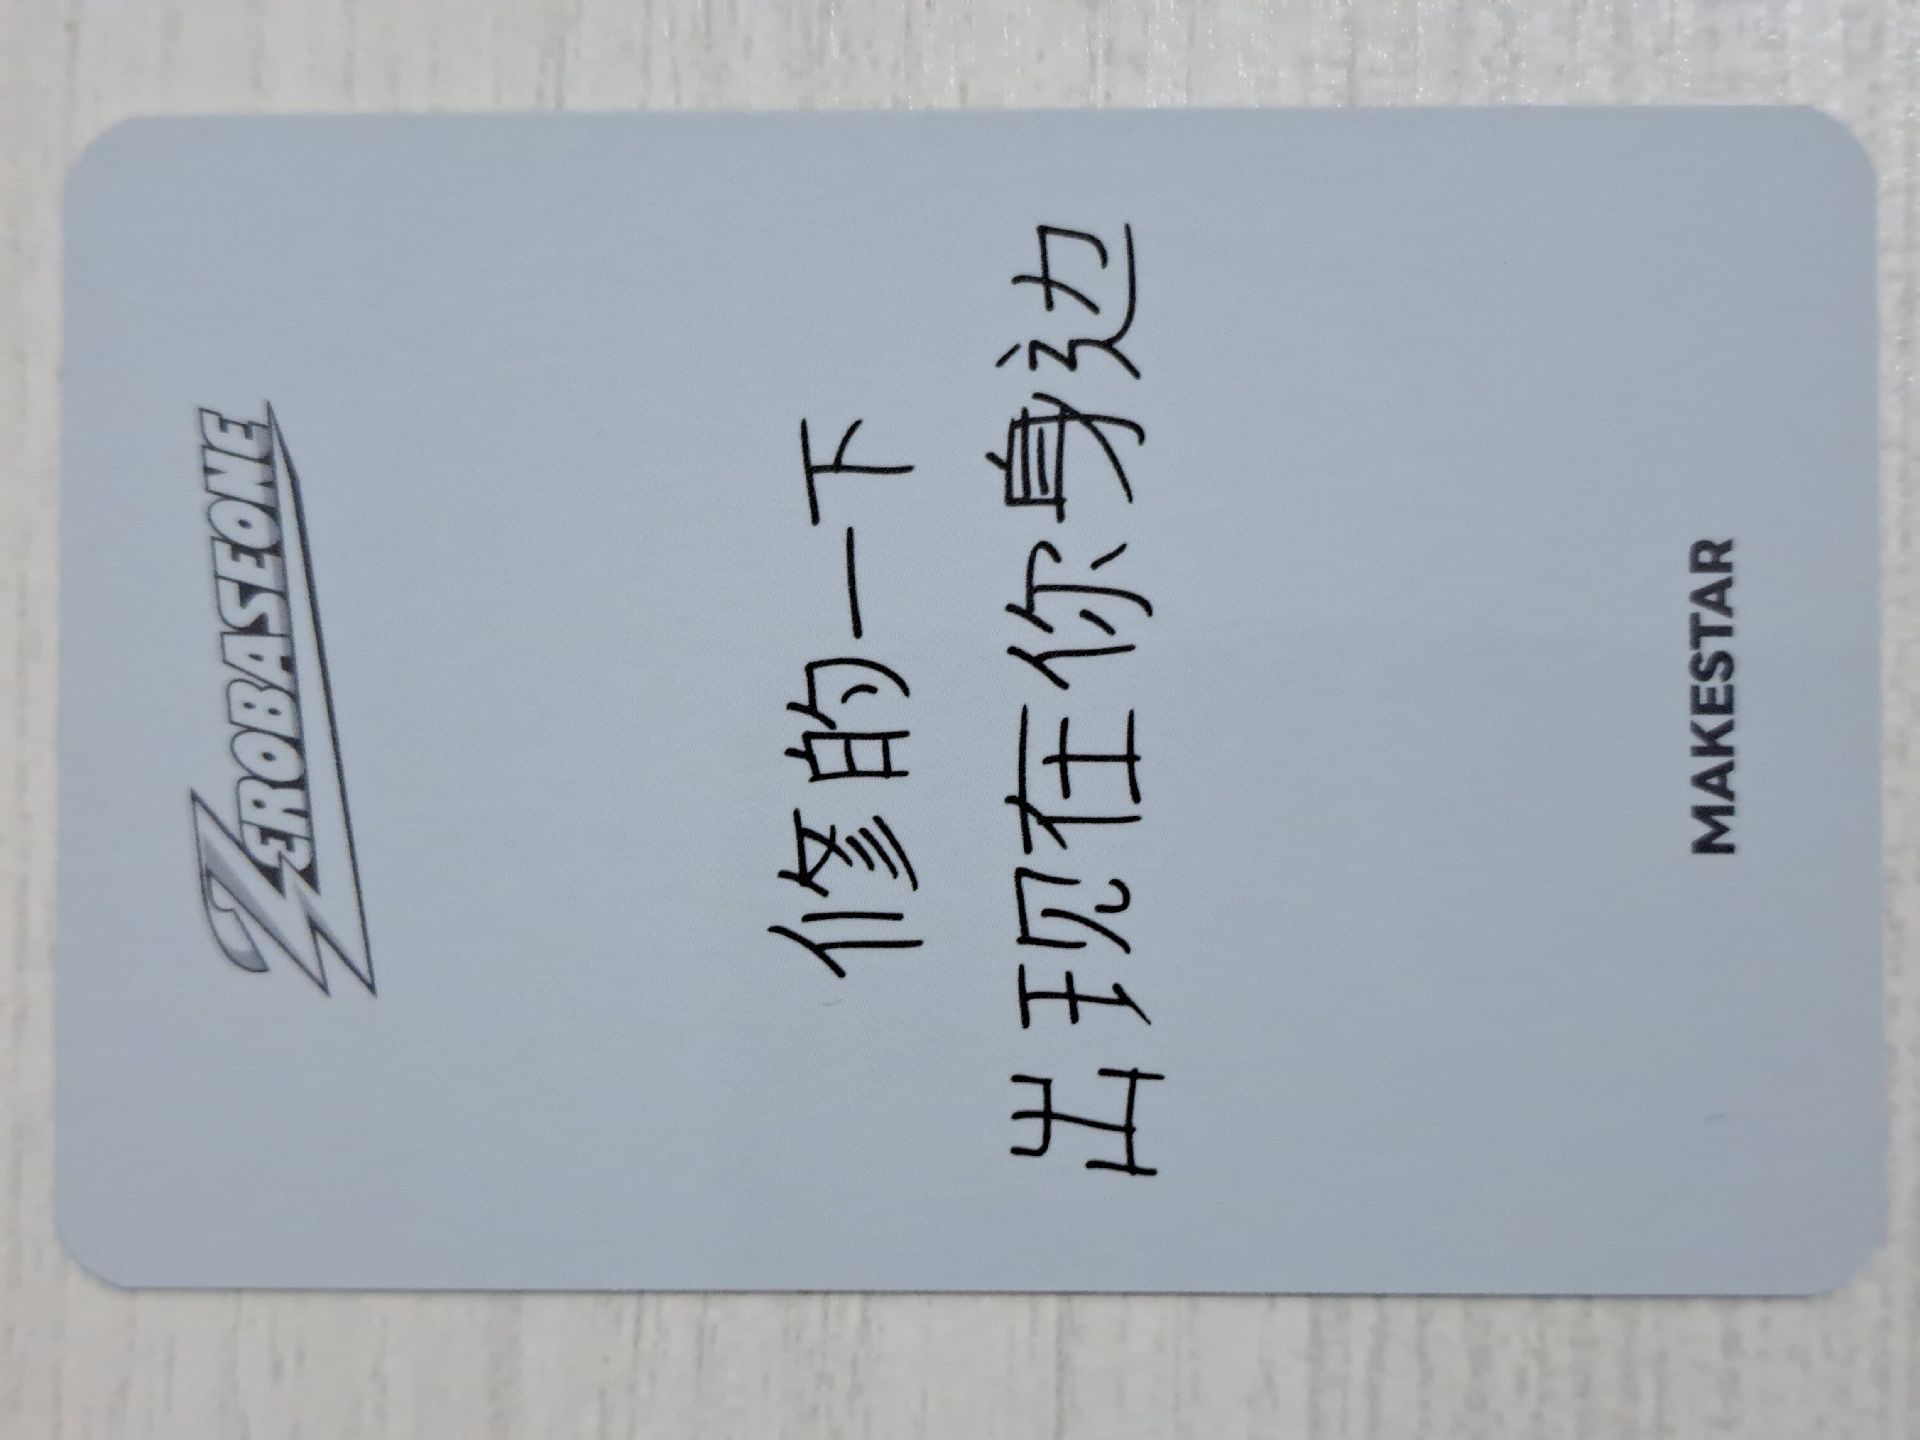 ZEROBASEONE
修的一下
出现在你身边
MAKESTAR